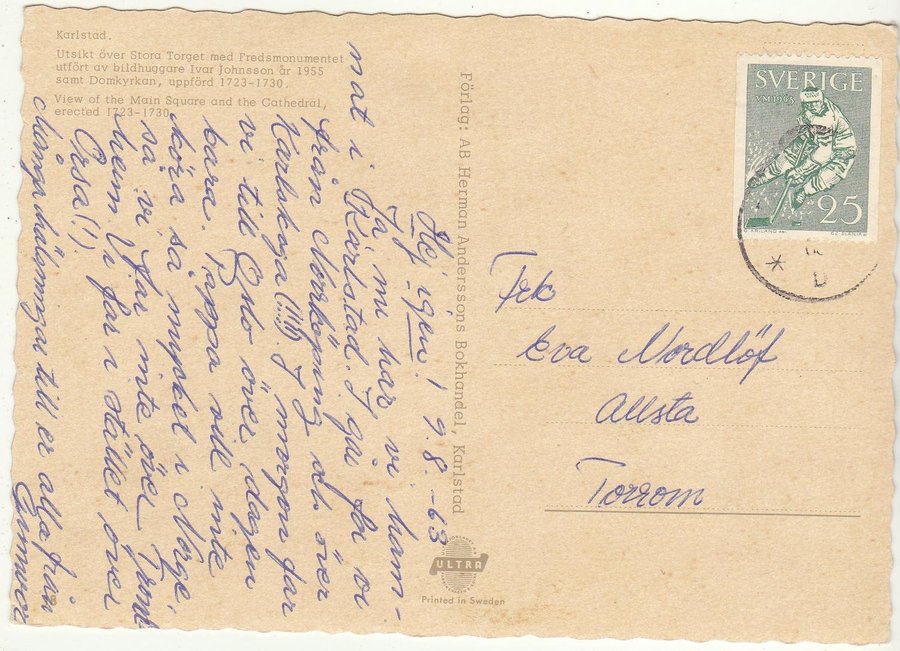 Karlstad.
Utsikt över Stora Torget med Fredsmonumentet
utfört av bildhuggare Ivar Johnsson år 1955
samt Domkyrkan, uppförd 1723-1730.
View of the Main Square and the Cathedral,
erected 1723-1730.
Hej igen! 9.8.-63
Ja, nu har vi ham-
nat i Karlstad. I går for vi
från Norrköping och över
Karlskoga (!!!). I morgon far
vi till Oslo över dagen
bara. Pappa vill inte
köra så mycket i Norge,
så vi far inte över Trond
heim. Vi far i stället över
Orsa (!).
hälsningar till er alla från
Gunvor
Förlag: AB Herman Anderssons Bokhandel, Karlstad
ULTRA
Printed in Sweden
SVERIGE
VM 1963
25
D
Frk
Eva Nordlöf
Allsta
Torrom